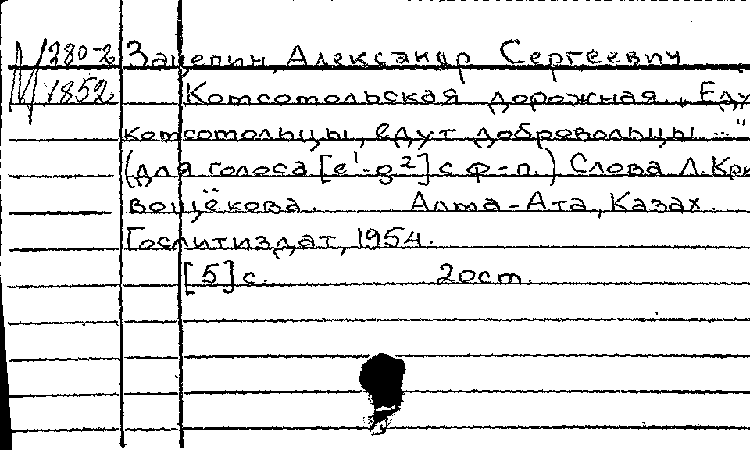 М 280-2 Зацепин, Александр Сергеевич
М 1852. Комсомольская дорожная „Еду
комсомольцы, едут добровольцы..."
(для голоса [e¹-g²] с ф-п.) Слова Л. Кри
вощёкова. Алма-Ата, Казах.
Гослитиздат, 1954.
[5] с. 20см.